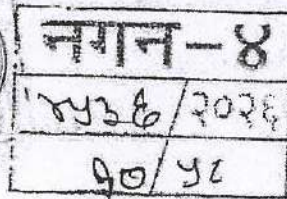 नगन-४
१५३६/२०२६
१०/५८